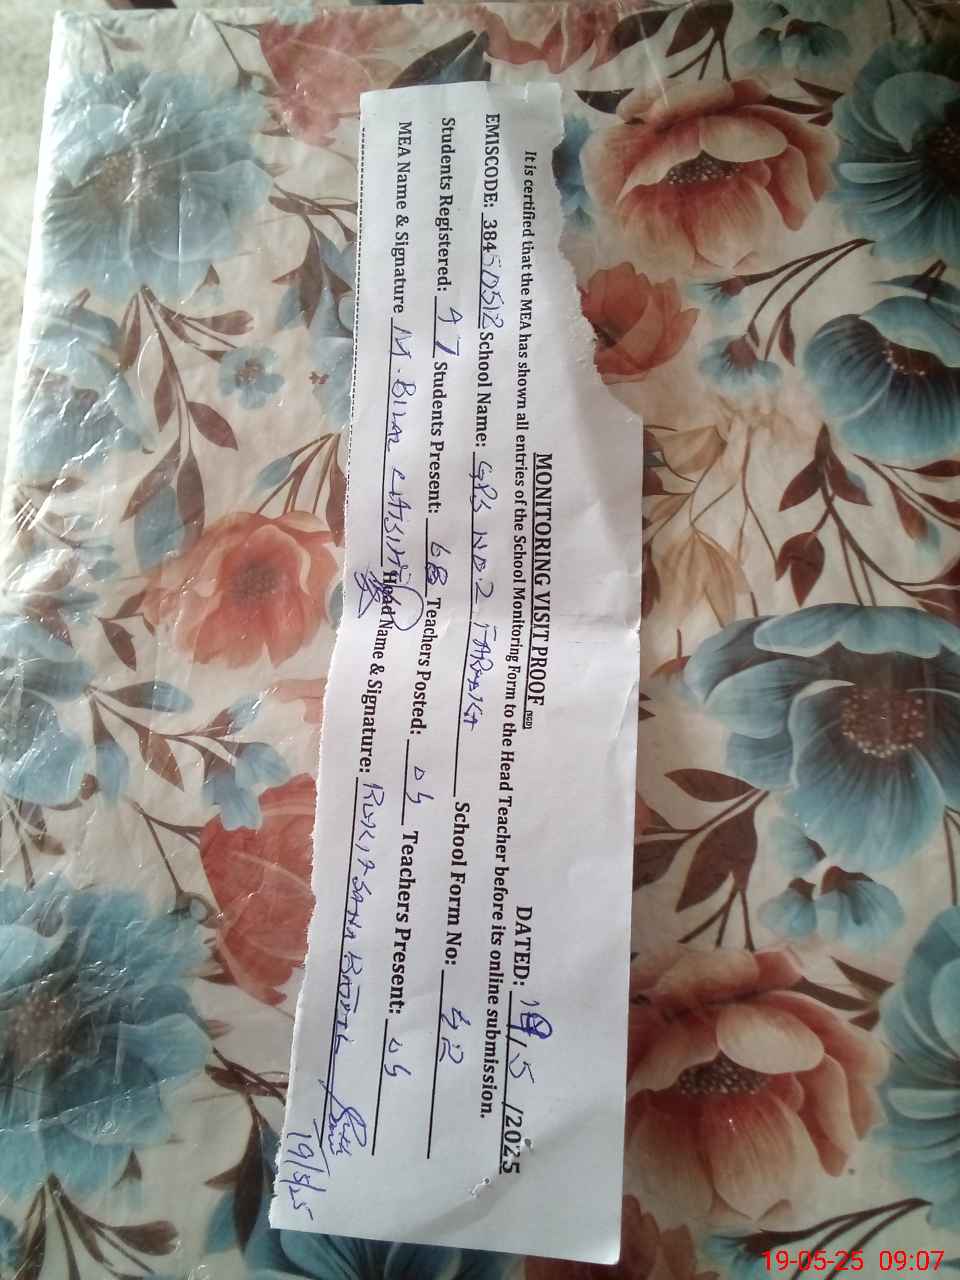 MONITORING VISIT PROOF (SGD) DATED: 19/5/2025
It is certified that the MEA has shown all entries of the School Monitoring Form to the Head Teacher before its online submission.
EMISCODE: 38450518 School Name: GPS NO.2 School Form No:
Students Registered: 97 Students Present: 68 Teachers Posted: Teachers Present:
MEA Name & Signature M. BILAL Head Name & Signature:
19/5/25
19-05-25 09:07